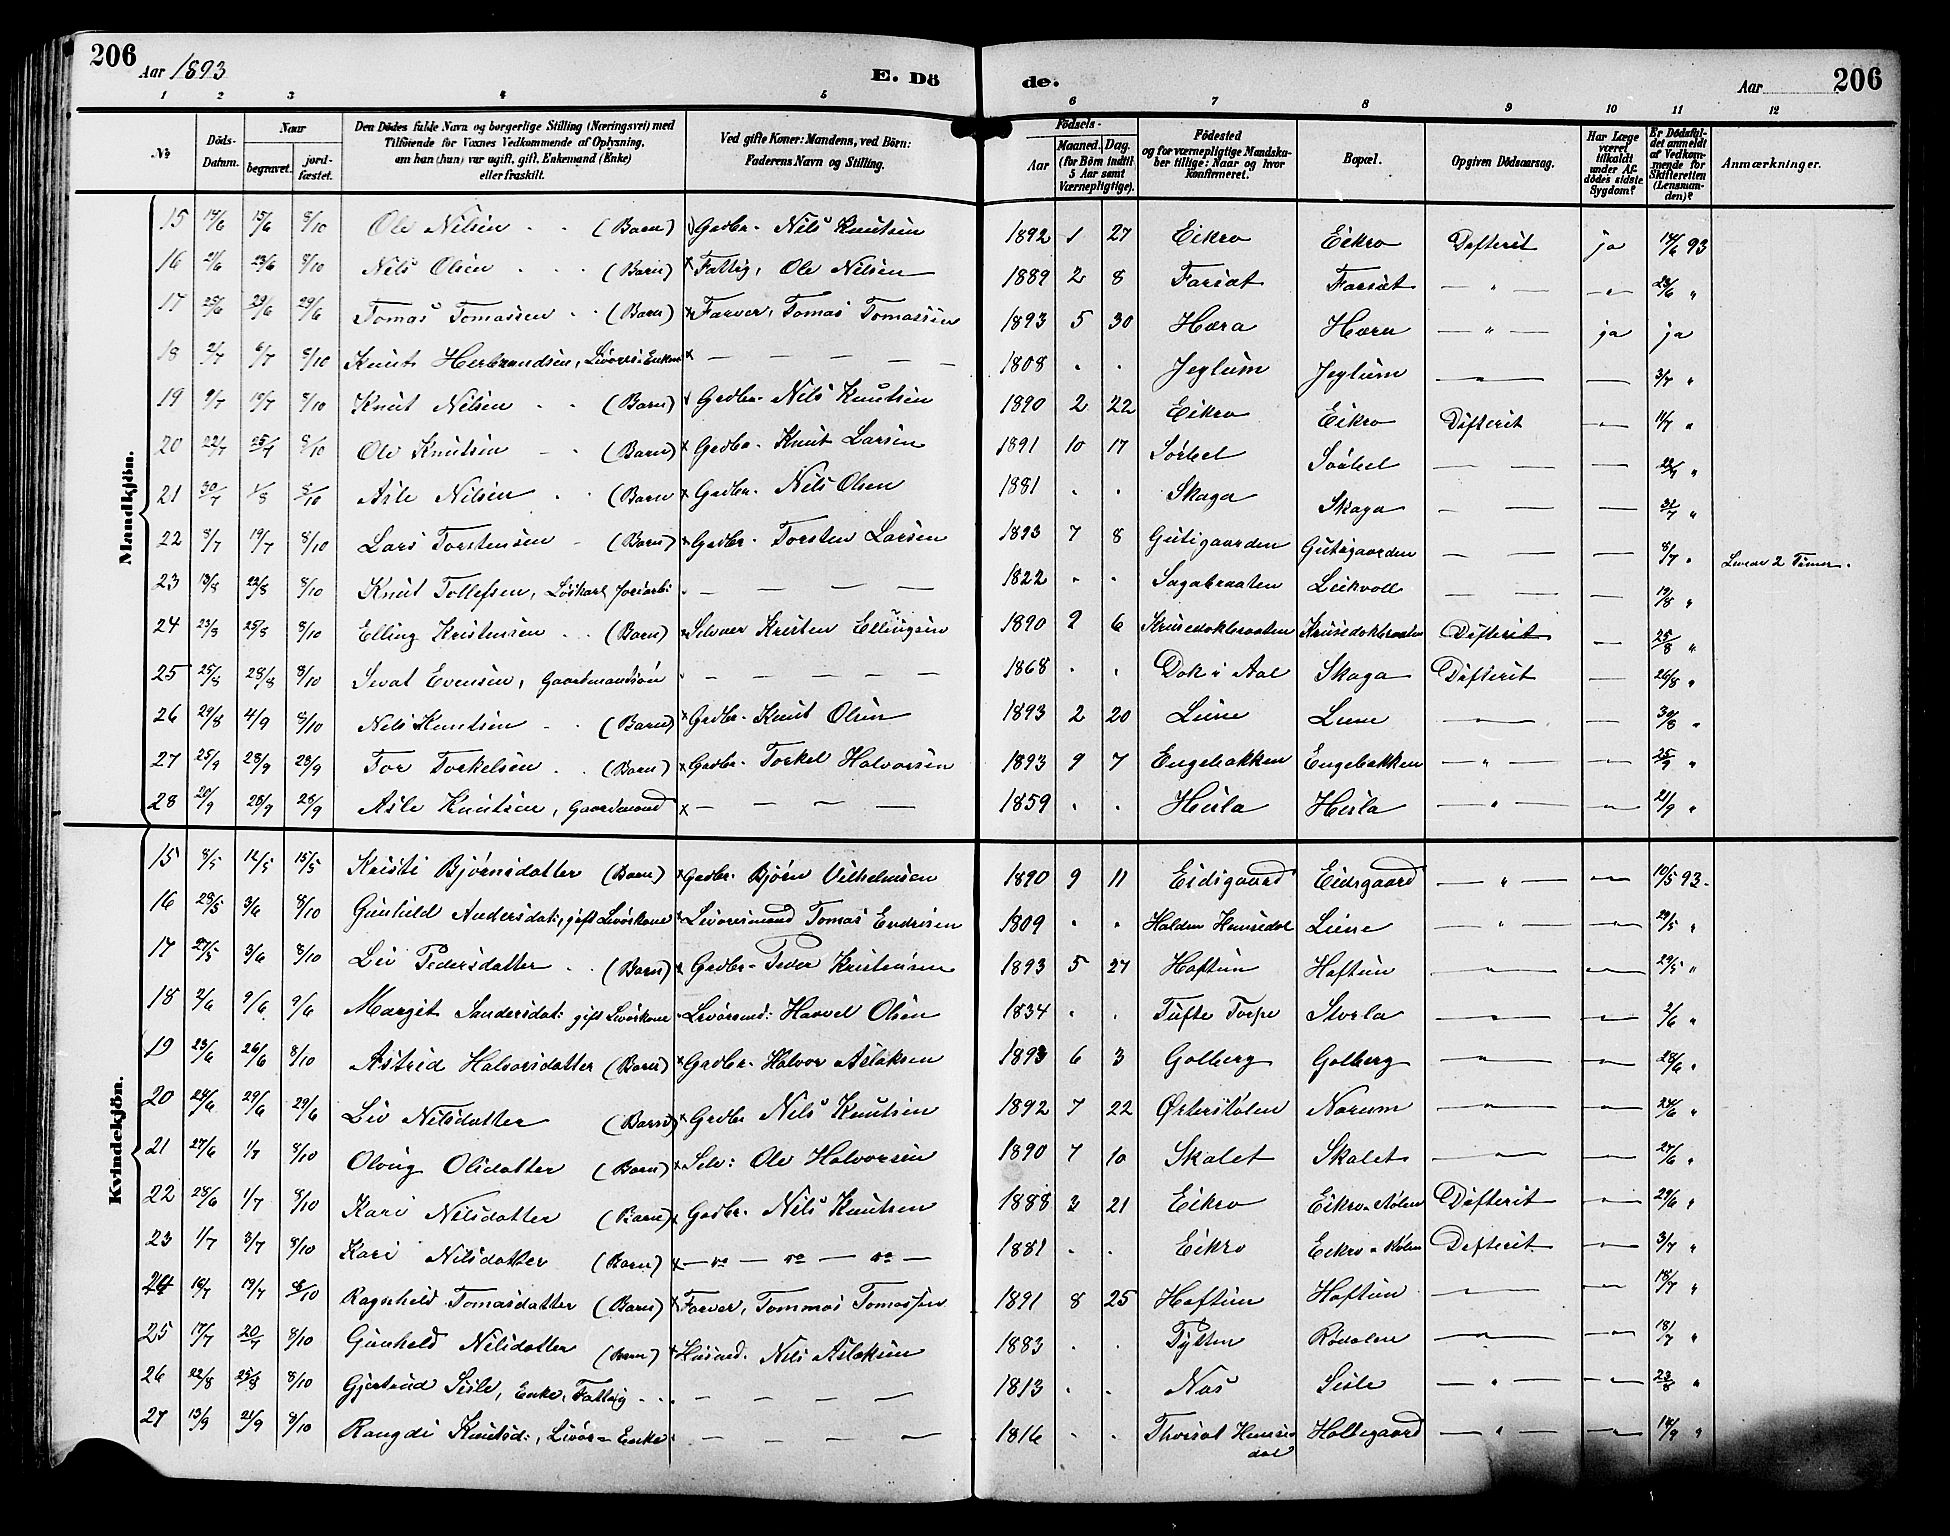 206
Aar 1893
E. Dö
de.
Aar
206
1 2 3 4 5 6 7 8 9 10 11 12
№
Döds-Datum.
Naar
begravet.
jordfæstet.
Den Dödes fulde Navn og borgerlige Stilling (Næringsvei) med Tilföiende for Voxnes Vedkommende af Oplysning, om han (hun) var ugift, gift, Enkemand (Enke) eller fraskilt.
Ved gifte Koner: Mandens, ved Börn: Faderens Navn og Stilling.
Födsels-
Aar
Maaned. Dag.
(for Börn indtil 5 Aar samt Værnepligtige).
Födested og for værnepligtige Mandskaber tillige: Naar og hvor konfirmeret.
Bopæl.
Opgiven Dödsaarsag.
Har Læge været tilkaldt under Afdödes sidste Sygdom?
Er Dödsfaldet anmeldt af Vedkommende for Skifteretten (Lensmanden)?
Anmærkninger.
Mandkjön.
15 14/6 15/6 8/10 Ole Nilsen (Barn) Grdbr. Nils Knutsen 1892 1 27 Eikro Eikro Difterit ja 14/6 93
16 21/6 23/6 8/10 Nils Olsen (Barn) Fattig, Ole Nilsen 1889 2 8 Farsæt Farsæt — " — — " — 23/6 "
17 25/6 29/6 29/6 Tomas Tomassen (Barn) Farver, Tomas Tomassen 1893 5 30 Hæra Hæra — " — ja ja
18 2/7 6/7 8/10 Knut Herbrandsen, 1808 " " Jeglum Jeglum — " — — 3/7 "
19 9/7 15/7 8/10 Knut Nilsen (Barn) Grdbr. Nils Knutsen 1890 2 22 Eikro Eikro Difterit — " — 11/7 "
20 22/7 25/7 8/10 Ole Knutsen (Barn) Grdbr. Knut Larsen 1891 10 17 Sørbel Sørbel — — — 22/7 "
21 30/7 1/8 8/10 Asle Nilsen (Barn Grdbr. Nils Olsen 1881 " " Skaga Skaga — — — 31/7 "
22 8/7 19/7 8/10 Lars Torstensen (Barn) Grdbr. Torsten Larsen 1893 7 8 Gutigaarden Gutigaarden — — — 8/7 " Levede 2 Timer.
23 13/8 22/8 8/10 Knut Tollefsen, Løskarl 1822 " " Sagabraaten Liekvoll — — — 19/8 "
24 23/8 25/8 8/10 Elling Kristensen (Barn) Selveier Kristen Ellingsen 1890 2 6 Krusedokbraaten Krusedokbraaten Difterit — 25/8 "
25 25/8 28/8 8/10 Sevat Evensen, Gaardmandsøn — — — — 1868 " " Dok i Aal Skaga Difterit — " — 26/8 "
26 29/8 4/9 8/10 Nils Knutsen (Barn) Grdbr. Knut Olsen 1893 2 20 Leine Leine — " — — 30/8 "
27 25/9 28/9 28/9 Tor Torkelsen (Barn) Grdbr. Torkel Halvorsen 1893 9 7 Engebakken Engebakken — " — — " — 25/9 "
28 20/9 28/9 28/9 Asle Knutsen, Gaardmand — — — — 1859 " " Heisla Heisla — " — — " — 21/9 "
Kvindekjön.
15 8/5 12/5 15/5 Kristi Bjørnsdatter (Barn) Grdbr. Bjørn Vilhelmsen 1890 9 11 Eidsgaard Eidsgaard — " — — " — 10/5 93.
16 29/5 3/6 8/10 Gunhild Andersdat:, gift Livøskone Livøresmand Tomas Endresen 1809 " " Halden Hemsedal Leine — " — — " — 29/5 "
17 27/5 3/6 8/10 Liv Pedersdatter (Barn) Grdbr. Peder Kristensen 1893 5 27 Haftun Haftun — " — — " — 29/5 "
18 2/6 9/6 9/6 Margit Sandersdat: gift Livøskone Livøresmd: Harvel Olsen 1834 " " Tufte Torpe Storla — " — — " — 3/6 "
19 23/6 26/6 8/10 Astrid Halvorsdatter (Barn) Grdbr. Halvor Aslaksen 1893 6 3 Golberg Golberg — " — — " — 28/6 "
20 24/6 29/6 29/6 Liv Nilsdatter (Barn) Grdbr Nils Knutsen 1892 7 22 Ørterstølen Narum — " — — " — 24/6 "
21 27/6 1/7 8/10 Olaug Olsdatter (Barn) Selv: Ole Halvorsen 1890 7 10 Skalet Skalet — " — — " — 27/6 "
22 28/6 1/7 8/10 Kari Nilsdatter (Barn) Gadbr. Nils Knutsen 1888 2 21 Eikro Eikro Difterit — " — 29/6 "
23 1/7 3/7 8/10 Kari Nilsdatter (Barn) — " — " — " — 1881 " " Eikro Eikro Difterit — " — 3/7 "
24 16/7 19/7 8/10 Ragnhild Tomasdatter (Barn) Farver, Tommas Tomassen 1891 8 25 Haftun Haftun — " — — " — 18/7 "
25 17/7 20/7 8/10 Gunhild Nilsdatter (Barn) Husmd. Nils Aslaksen 1883 " " Tylten Rødalen — " — — " — 18/7 "
26 22/8 25/8 8/10 Gjertrud Sisle, Enke, Fattig — — — — 1813 " " Nas Sisle — " — — " — 23/8 "
27 13/9 21/9 8/10 Rangdi Knutsd:, Livør- Enke — — — — 1816 " " Thorset Hemsedal Hallegaard — " — — " — 14/9 "